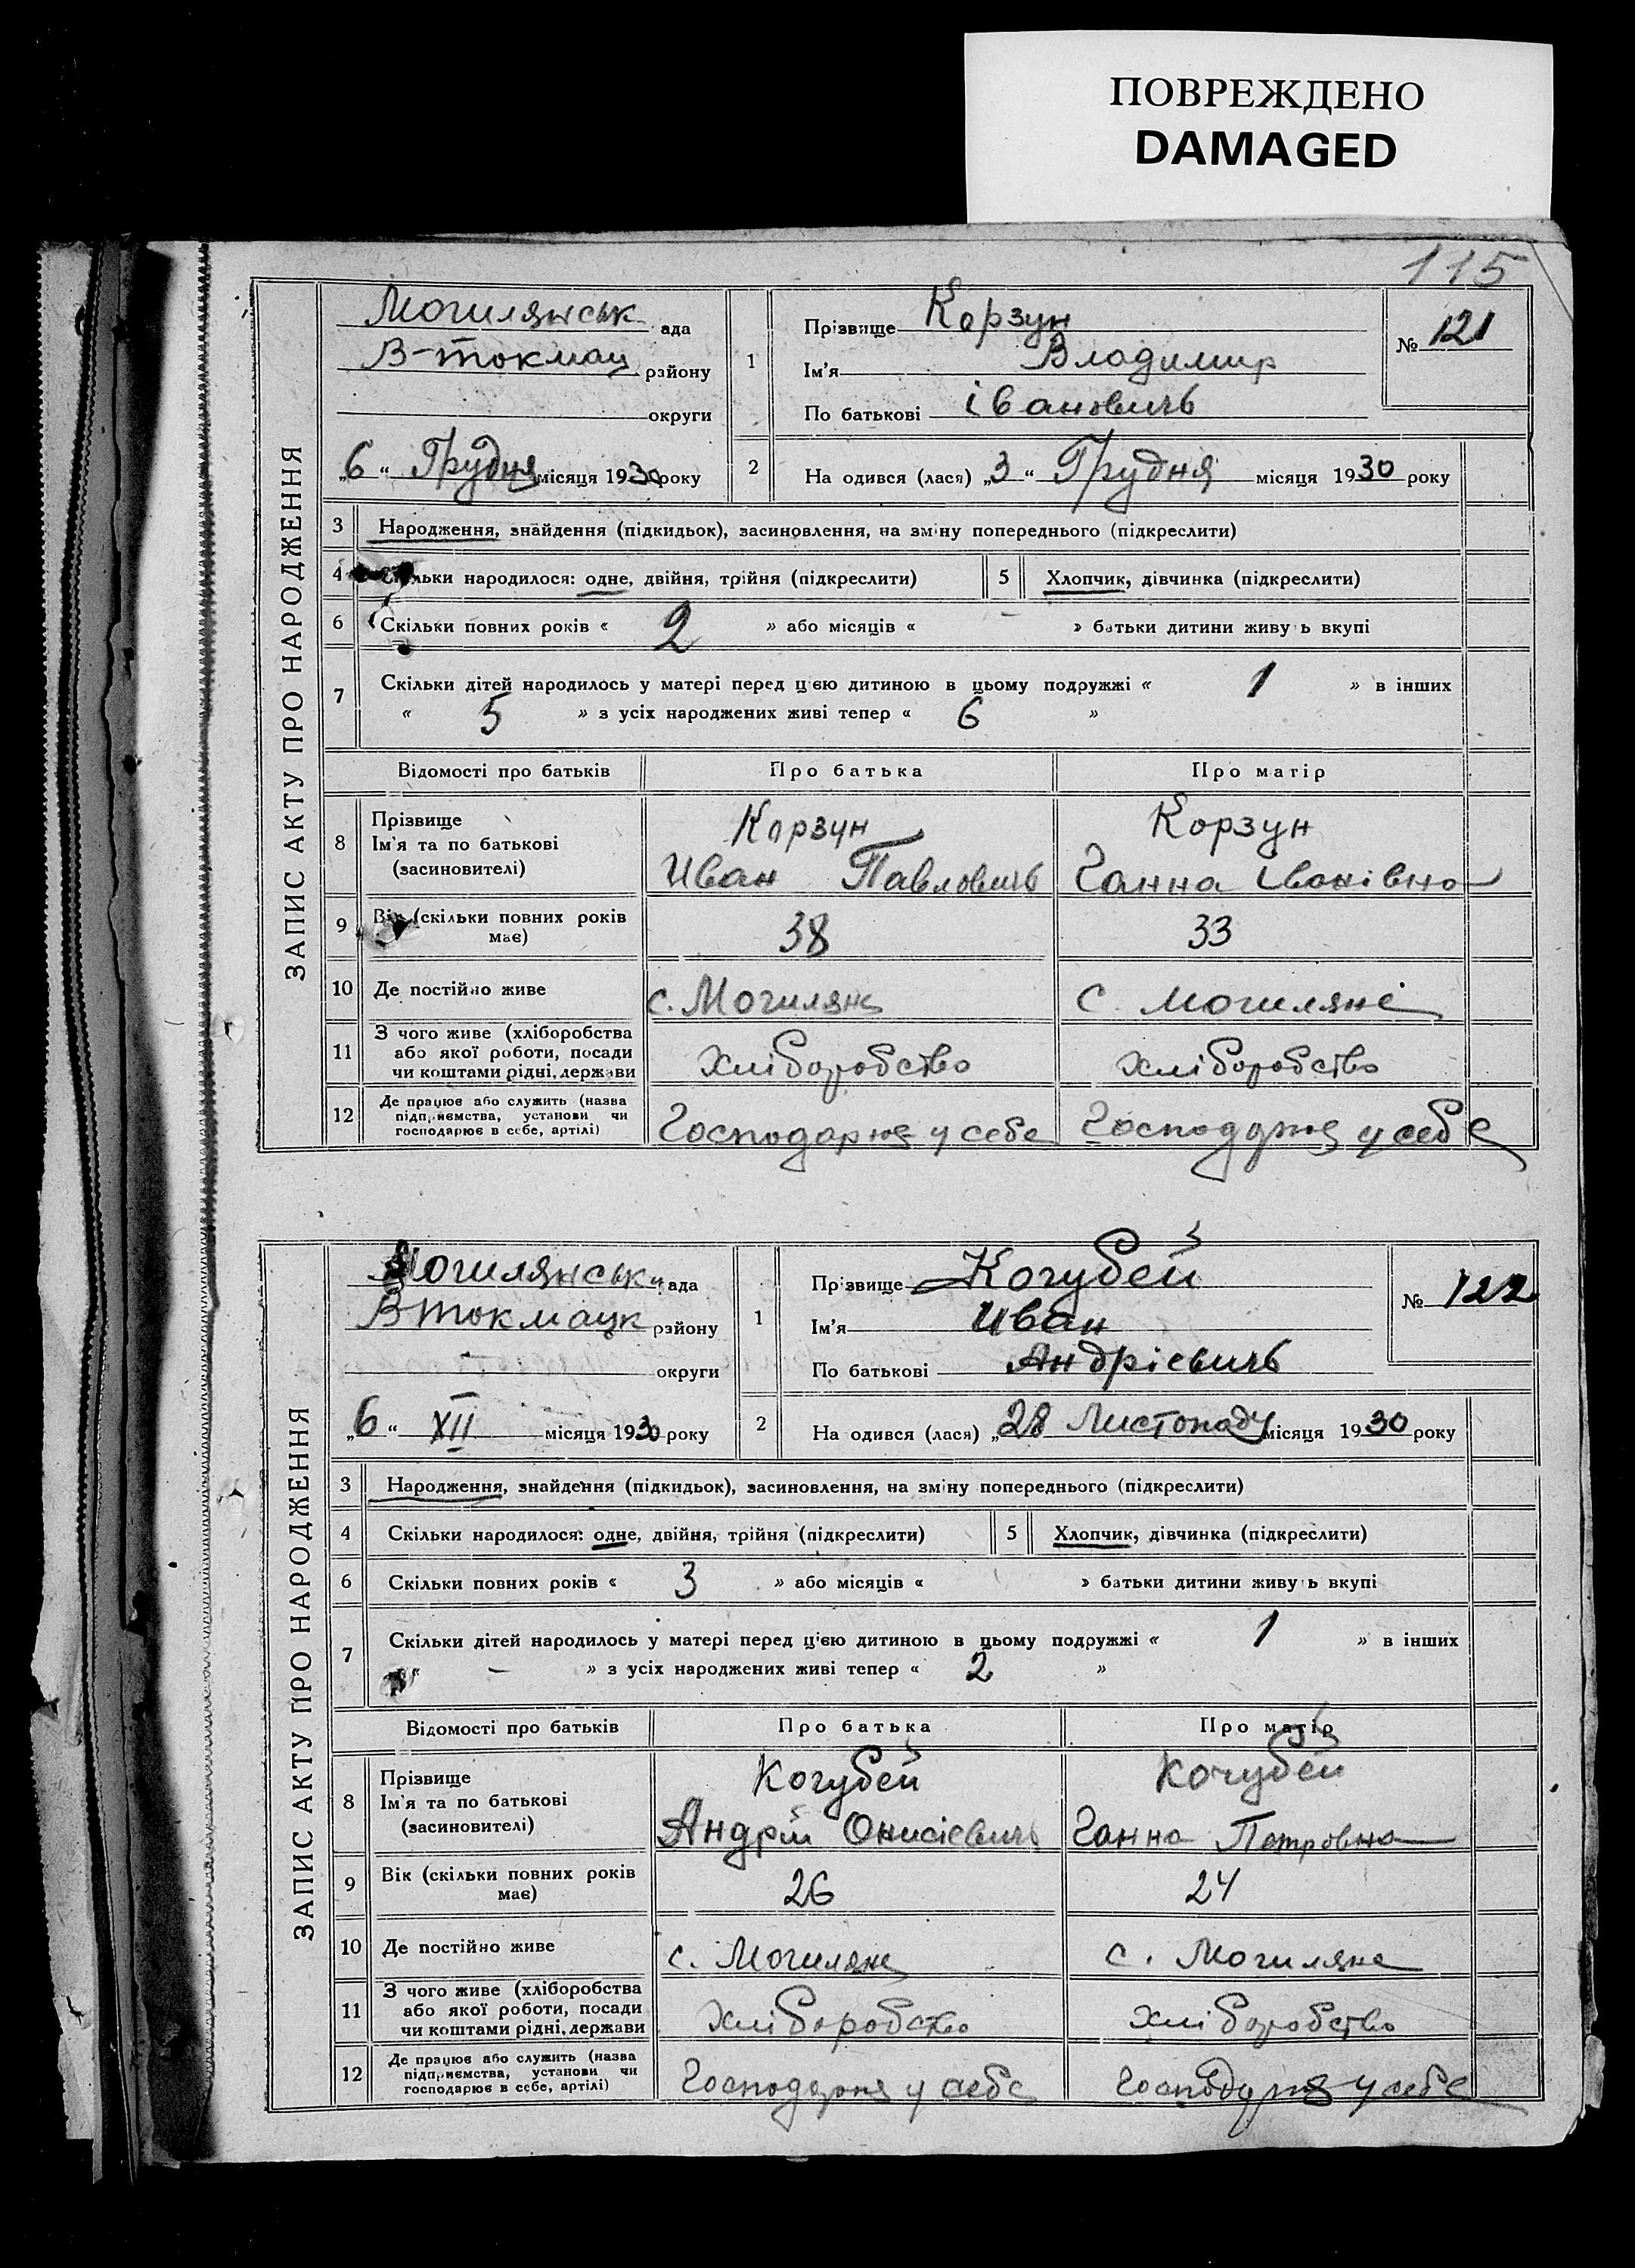 ПОВРЕЖДЕНО
DAMAGED
115
ЗАПИС АКТУ ПРО НАРОДЖЕННЯ
Могилянськ ада
В-токмац району
округи
„6“ Грудня місяця 1930 року
1
Прізвище Корзун
Ім'я Владимир
По батькові івановичъ
№ 121
2 На одився (лася) „3“ Грудня місяця 1930 року
3 Народження, знайдення (підкидьок), засиновлення, на зміну попереднього (підкреслити)
4 Скільки народилося: одне, двійня, трійня (підкреслити) 5 Хлопчик, дівчинка (підкреслити)
6 Скільки повних років « 2 » або місяців « – » батьки дитини живу ь вкупі
7 Скільки дітей народилось у матері перед цією дитиною в цьому подружжі « 1 » в інших
« 5 » з усіх народжених живі тепер « 6 »
Відомості про батьків Про батька Про матір
8 Прізвище Ім'я та по батькові (засиновителі)
Корзун Корзун
Иван Павловичъ Ганна Іванівна
9 Вік (скільки повних років має) 38 33
10 Де постійно живе с. Могиляне с. Могиляні
11 З чого живе (хліборобства або якої роботи, посади чи коштами рідні, держави Хліборобство Хліборобство
12 Де працює або служить (назва підприємства, установи чи господарює в себе, артілі) Господарює у себе Господарює у себе
ЗАПИС АКТУ ПРО НАРОДЖЕННЯ
Могилянськ ада
В токмацк району
округи
„6“ XII місяця 1930 року
1
Прізвище Кочубей
Ім'я Иван
По батькові Андрієвичъ
№ 122
2 На одився (лася) „28 Листопаду місяця 1930 року
3 Народження, знайдення (підкидьок), засиновлення, на зміну попереднього (підкреслити)
4 Скільки народилося: одне, двійня, трійня (підкреслити) 5 Хлопчик, дівчинка (підкреслити)
6 Скільки повних років « 3 » або місяців « » батьки дитини живу ь вкупі
7 Скільки дітей народилось у матері перед цією дитиною в цьому подружжі « 1 » в інших
« – » з усіх народжених живі тепер « 2 »
Відомості про батьків Про батька Про матір
8 Прізвище Ім'я та по батькові (засиновителі)
Кочубей Кочубей
Андрій Онисієвичъ Ганна Петровна
9 Вік (скільки повних років має) 26 24
10 Де постійно живе с. Могиляне с. Могиляне
11 З чого живе (хліборобства або якої роботи, посади чи коштами рідні, держави Хліборобство Хліборобство
12 Де працює або служить (назва підприємства, установи чи господарює в себе, артілі) Господарює у себе Господарює у себе